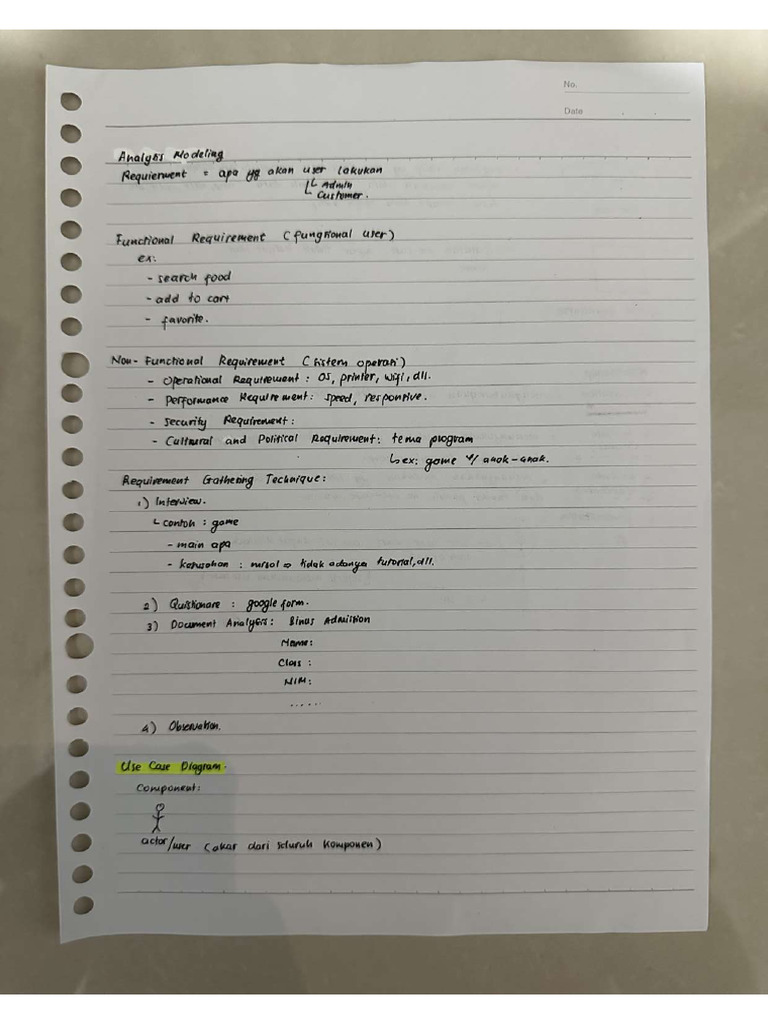 No.
Date
Analysis Modeling
Requierment = apa yg akan user lakukan
↳ Admin
↳ Customer.
Functional Requirement (fungsional user)
ex:
- search food
- add to cart
- favorite.
Non-Functional Requirement (sistem operasi)
- Operational Requirement : OS, printer, wifi, dll.
- Performance Requirement : speed, responsive.
- Security Requirement :
- Cultural and Political Requirement : tema program
↳ ex: game u/ anak-anak.
Requirement Gathering Technique :
1) Interview.
↳ contoh : game
- main apa
- kesusahan : misal => tidak adanya tutorial, dll.
2) Quistionare : google form.
3) Document Analysis : Binus Admission
Name :
Class :
NIM :
.....
4) Observation.
Use Case Diagram.
Component :
actor/user (akar dari seluruh komponen)